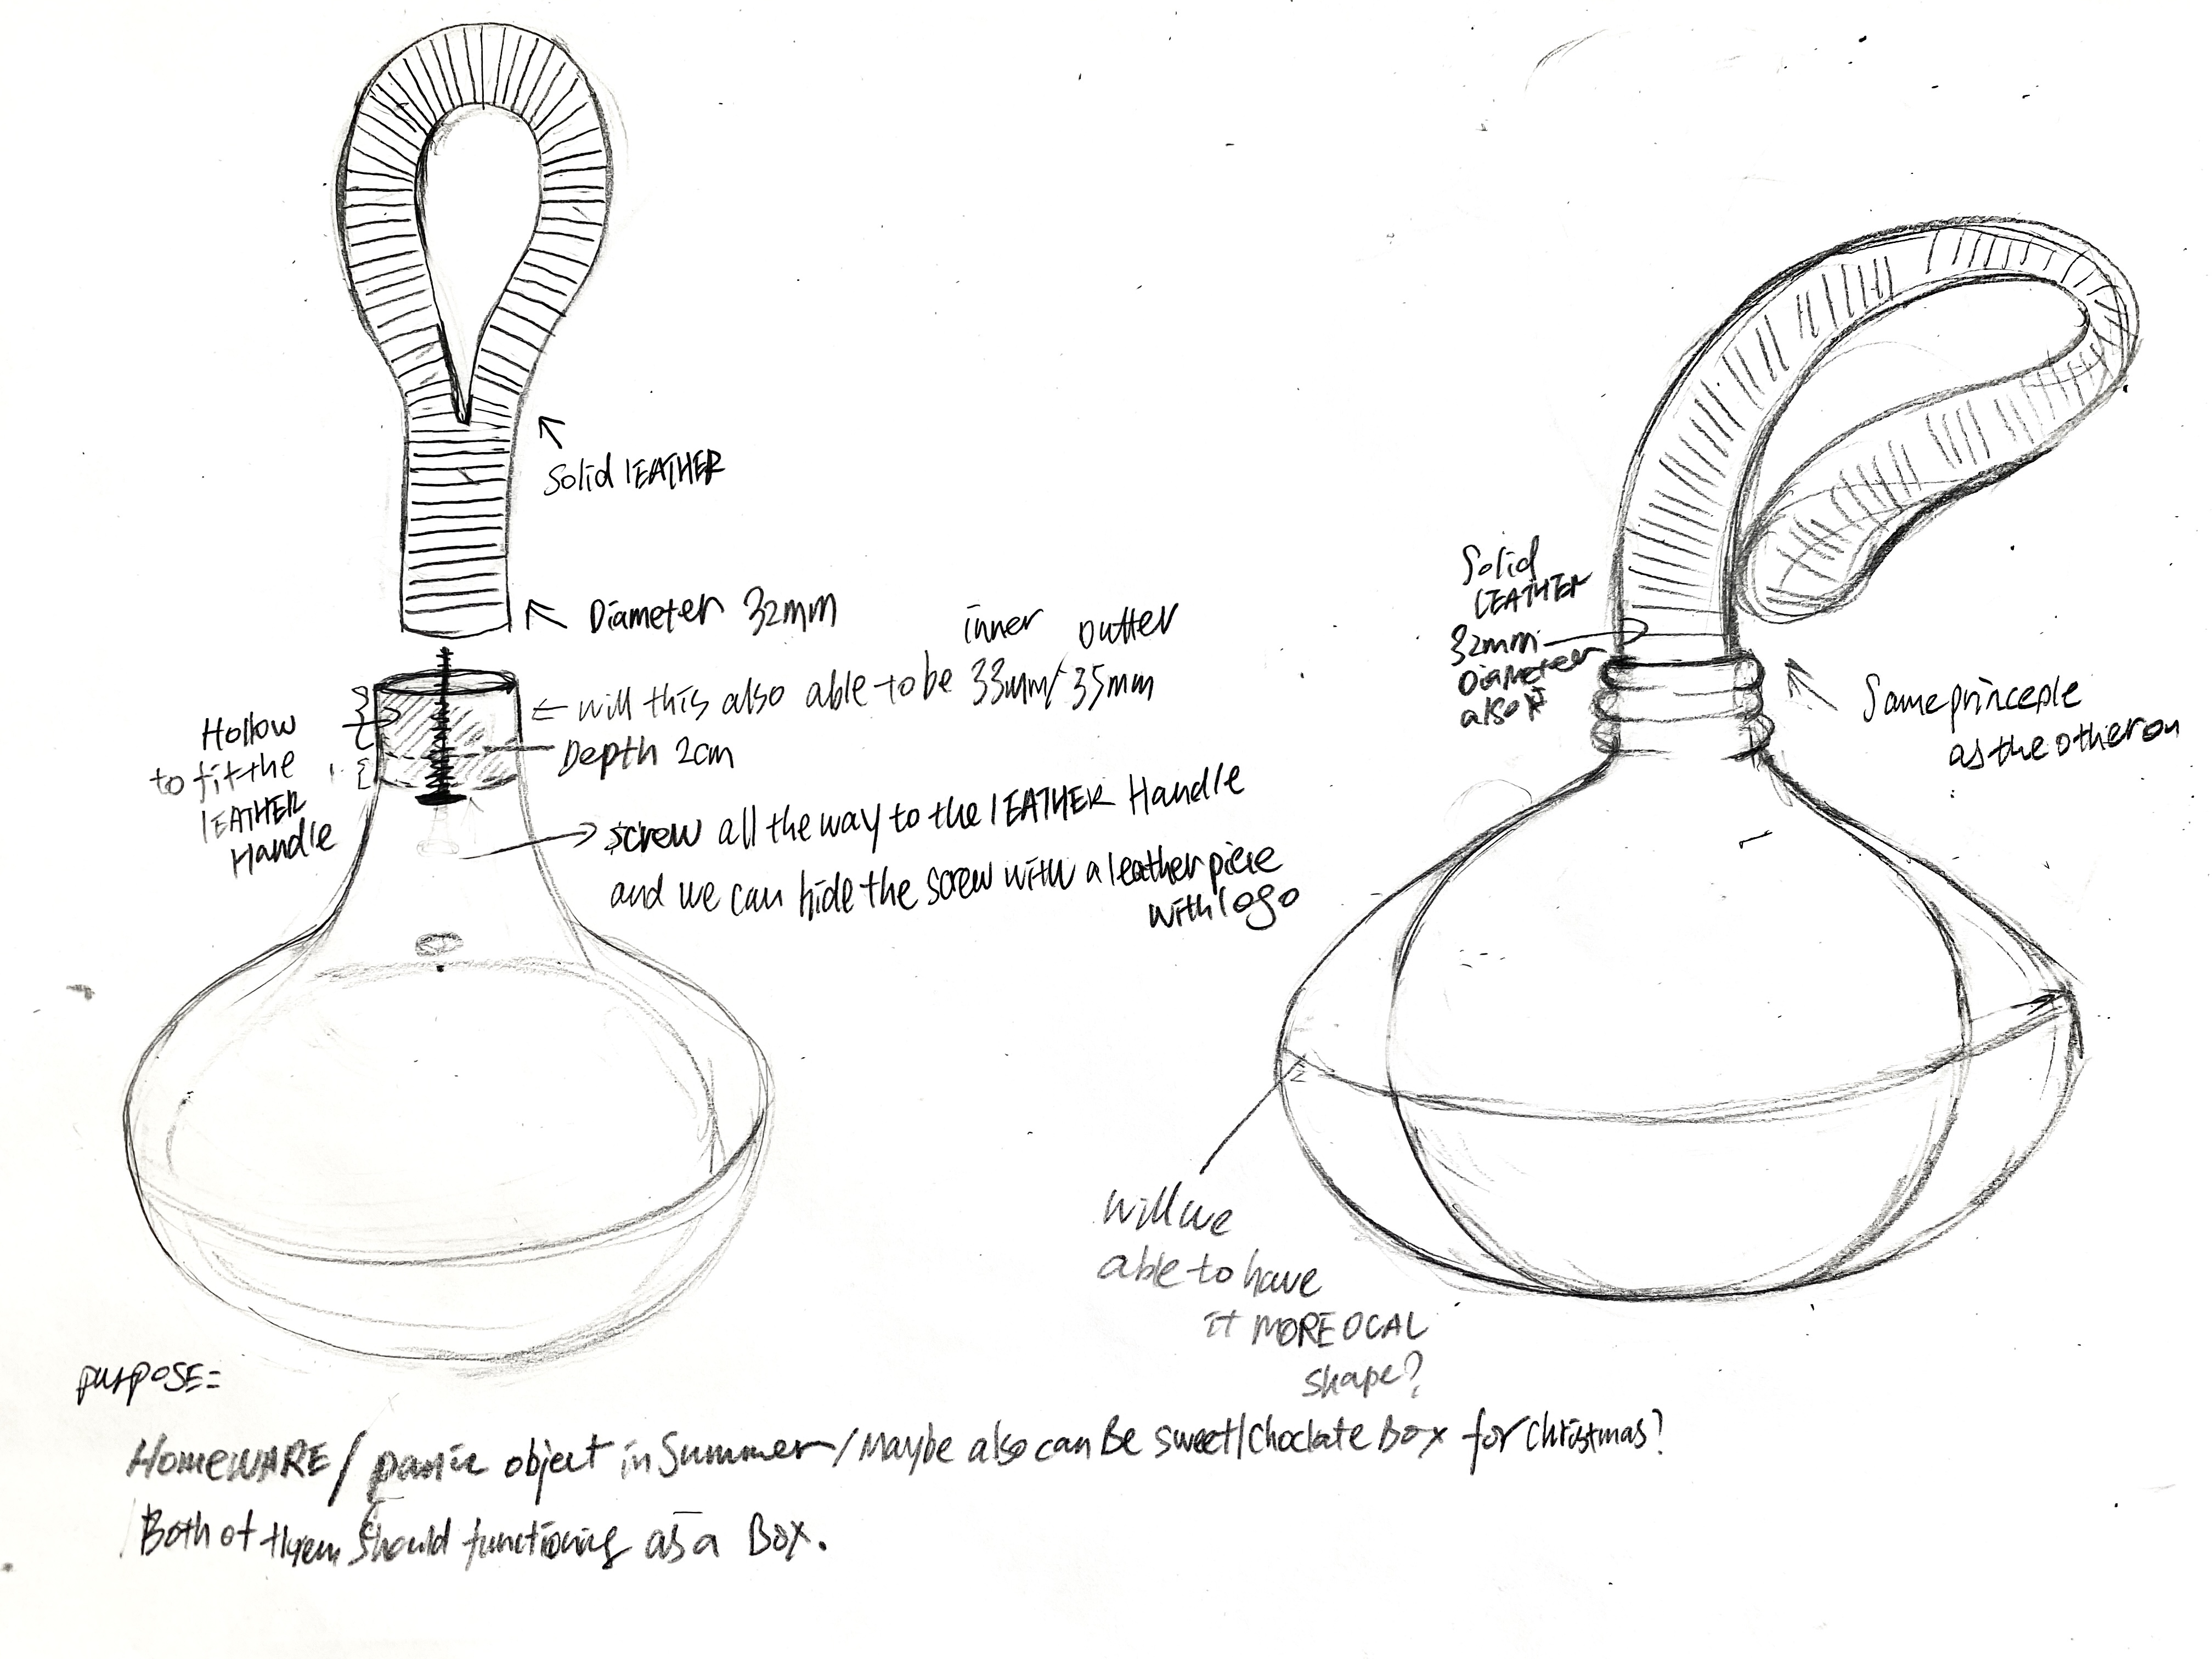 Solid lEATHER
Diameter 32mm
inner outter
will this also able to be 33mm/35mm
Depth 2cm
Hollow
to fit the
lEATHER
Handle
screw all the way to the lEATHER Handle
and we can hide the screw with a leather piece
with logo
Solid
LEATHER
32mm
Diameter
also
Same princeple
as the other on
Will we
able to have
it MORE OCAL
shape?
purpoSE=
HomeWARE / object in Summer / Maybe also can Be sweet/Choclate Box for Christmas?
Both of them should functioning as a Box.